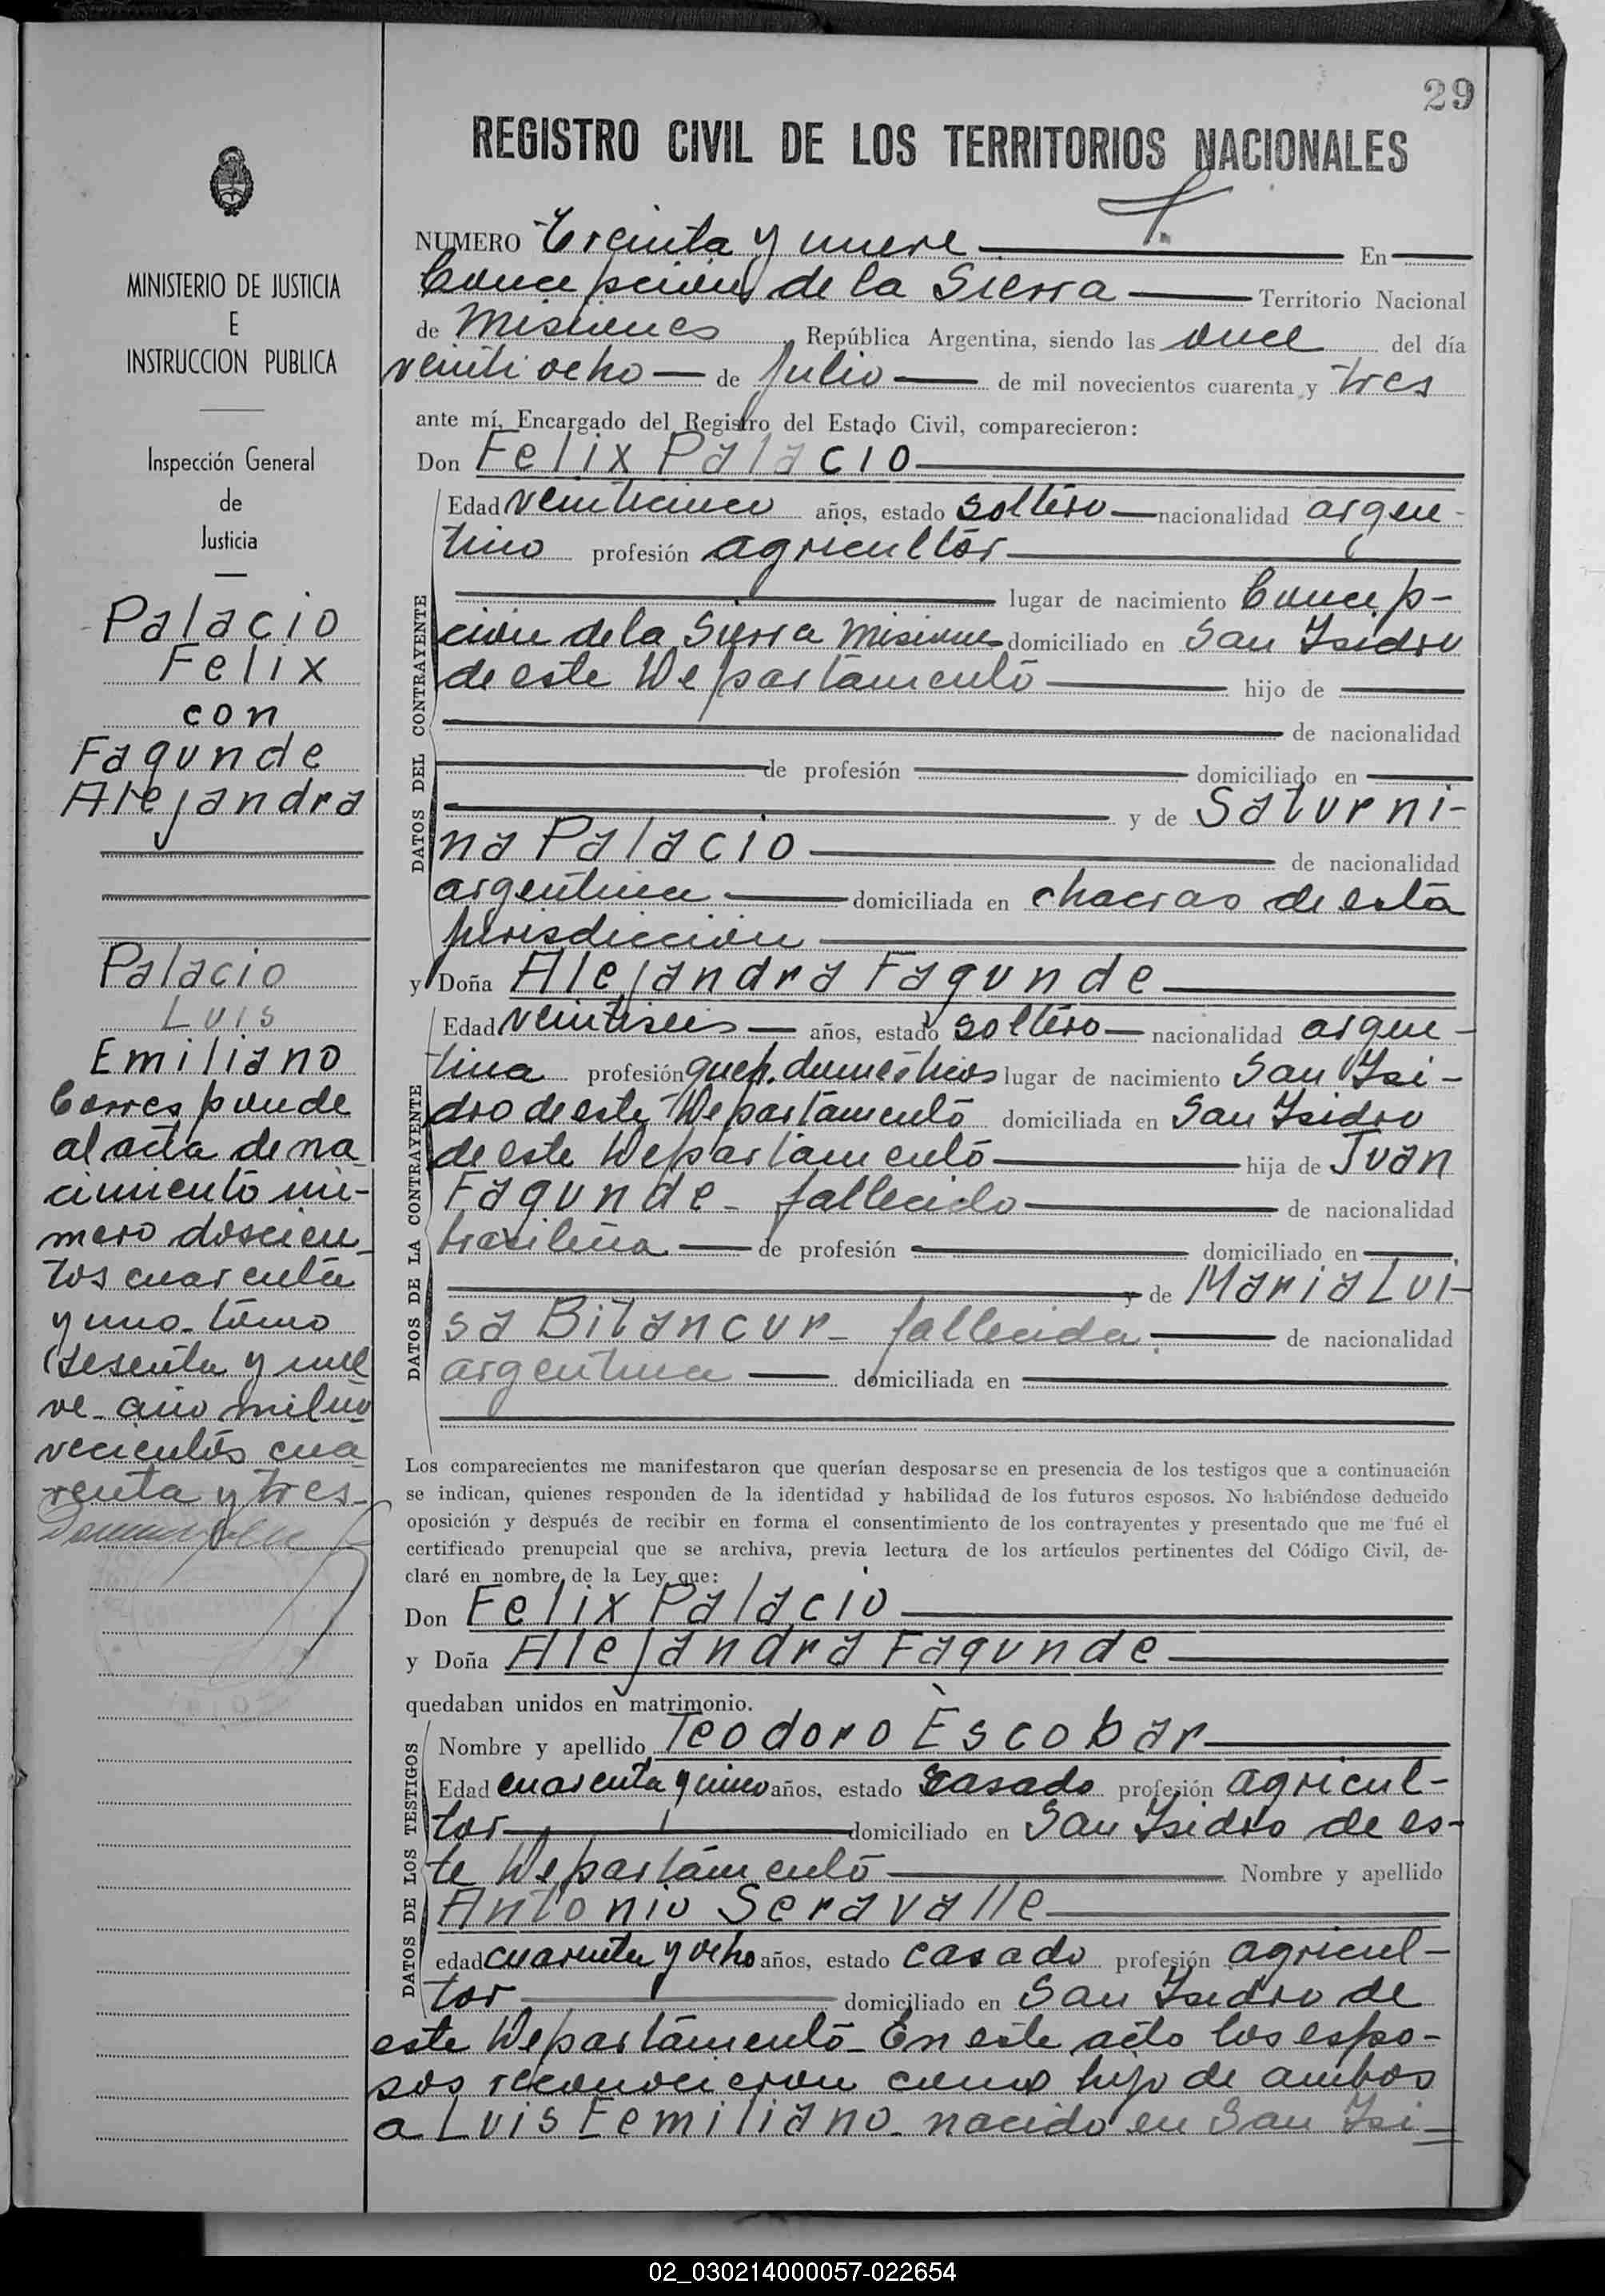 29
REGISTRO CIVIL DE LOS TERRITORIOS NACIONALES
MINISTERIO DE JUSTICIA
E
INSTRUCCION PUBLICA
Inspección General
de
Justicia
Palacio
Felix
con
Fagunde
Alejandra
Palacio
Luis
Emiliano
Corresponde
al acta de na
cimiento nú-
mero doscien-
tos cuarenta
y uno - tomo
sesenta y nue
ve - año mil no
vecientos cua
renta y tres -
NUMERO Treinta y nueve En
Concepcion de la Sierra Territorio Nacional
de Misiones República Argentina, siendo las once del día
veintiocho de Julio de mil novecientos cuarenta y tres
ante mí, Encargado del Registro del Estado Civil, comparecieron:
Don Felix Palacio
DATOS DEL CONTRAYENTE
Edad veinticinco años, estado soltero nacionalidad argen-
tino profesión agricultor
lugar de nacimiento Concep-
cion de la Sierra Misiones domiciliado en San Isidro
de este Departamento hijo de
de nacionalidad
de profesión domiciliado en
y de Saturni-
na Palacio de nacionalidad
argentina domiciliada en chacras de esta
jurisdiccion
y Doña Alejandra Fagunde
DATOS DE LA CONTRAYENTE
Edad veintiseis años, estado soltero nacionalidad argen-
tina profesión queh. domésticos lugar de nacimiento San Isi-
dro de este Departamento domiciliada en San Isidro
de este Departamento hija de Juan
Fagunde - fallecido de nacionalidad
brasileña de profesión domiciliado en
y de Maria Lui-
sa Bitancur - fallecida de nacionalidad
argentina domiciliada en
Los comparecientes me manifestaron que querían desposarse en presencia de los testigos que a continuación
se indican, quienes responden de la identidad y habilidad de los futuros esposos. No habiéndose deducido
oposición y después de recibir en forma el consentimiento de los contrayentes y presentado que me fué el
certificado prenupcial que se archiva, previa lectura de los artículos pertinentes del Código Civil, de-
claré en nombre de la Ley que:
Don Felix Palacio
y Doña Alejandra Fagunde
quedaban unidos en matrimonio.
DATOS DE LOS TESTIGOS
Nombre y apellido Teodoro Escobar
Edad cuarenta y cinco años, estado casado profesión agricul-
tor domiciliado en San Isidro de es-
te Departamento Nombre y apellido
Antonio Seravalle
edad cuarenta y ocho años, estado casado profesión agricul-
tor domiciliado en San Isidro de
este Departamento - En este acto los espo-
sos reconocieron como hijo de ambos
a Luis Eemiliano - nacido en San Isi-
02_030214000057-022654